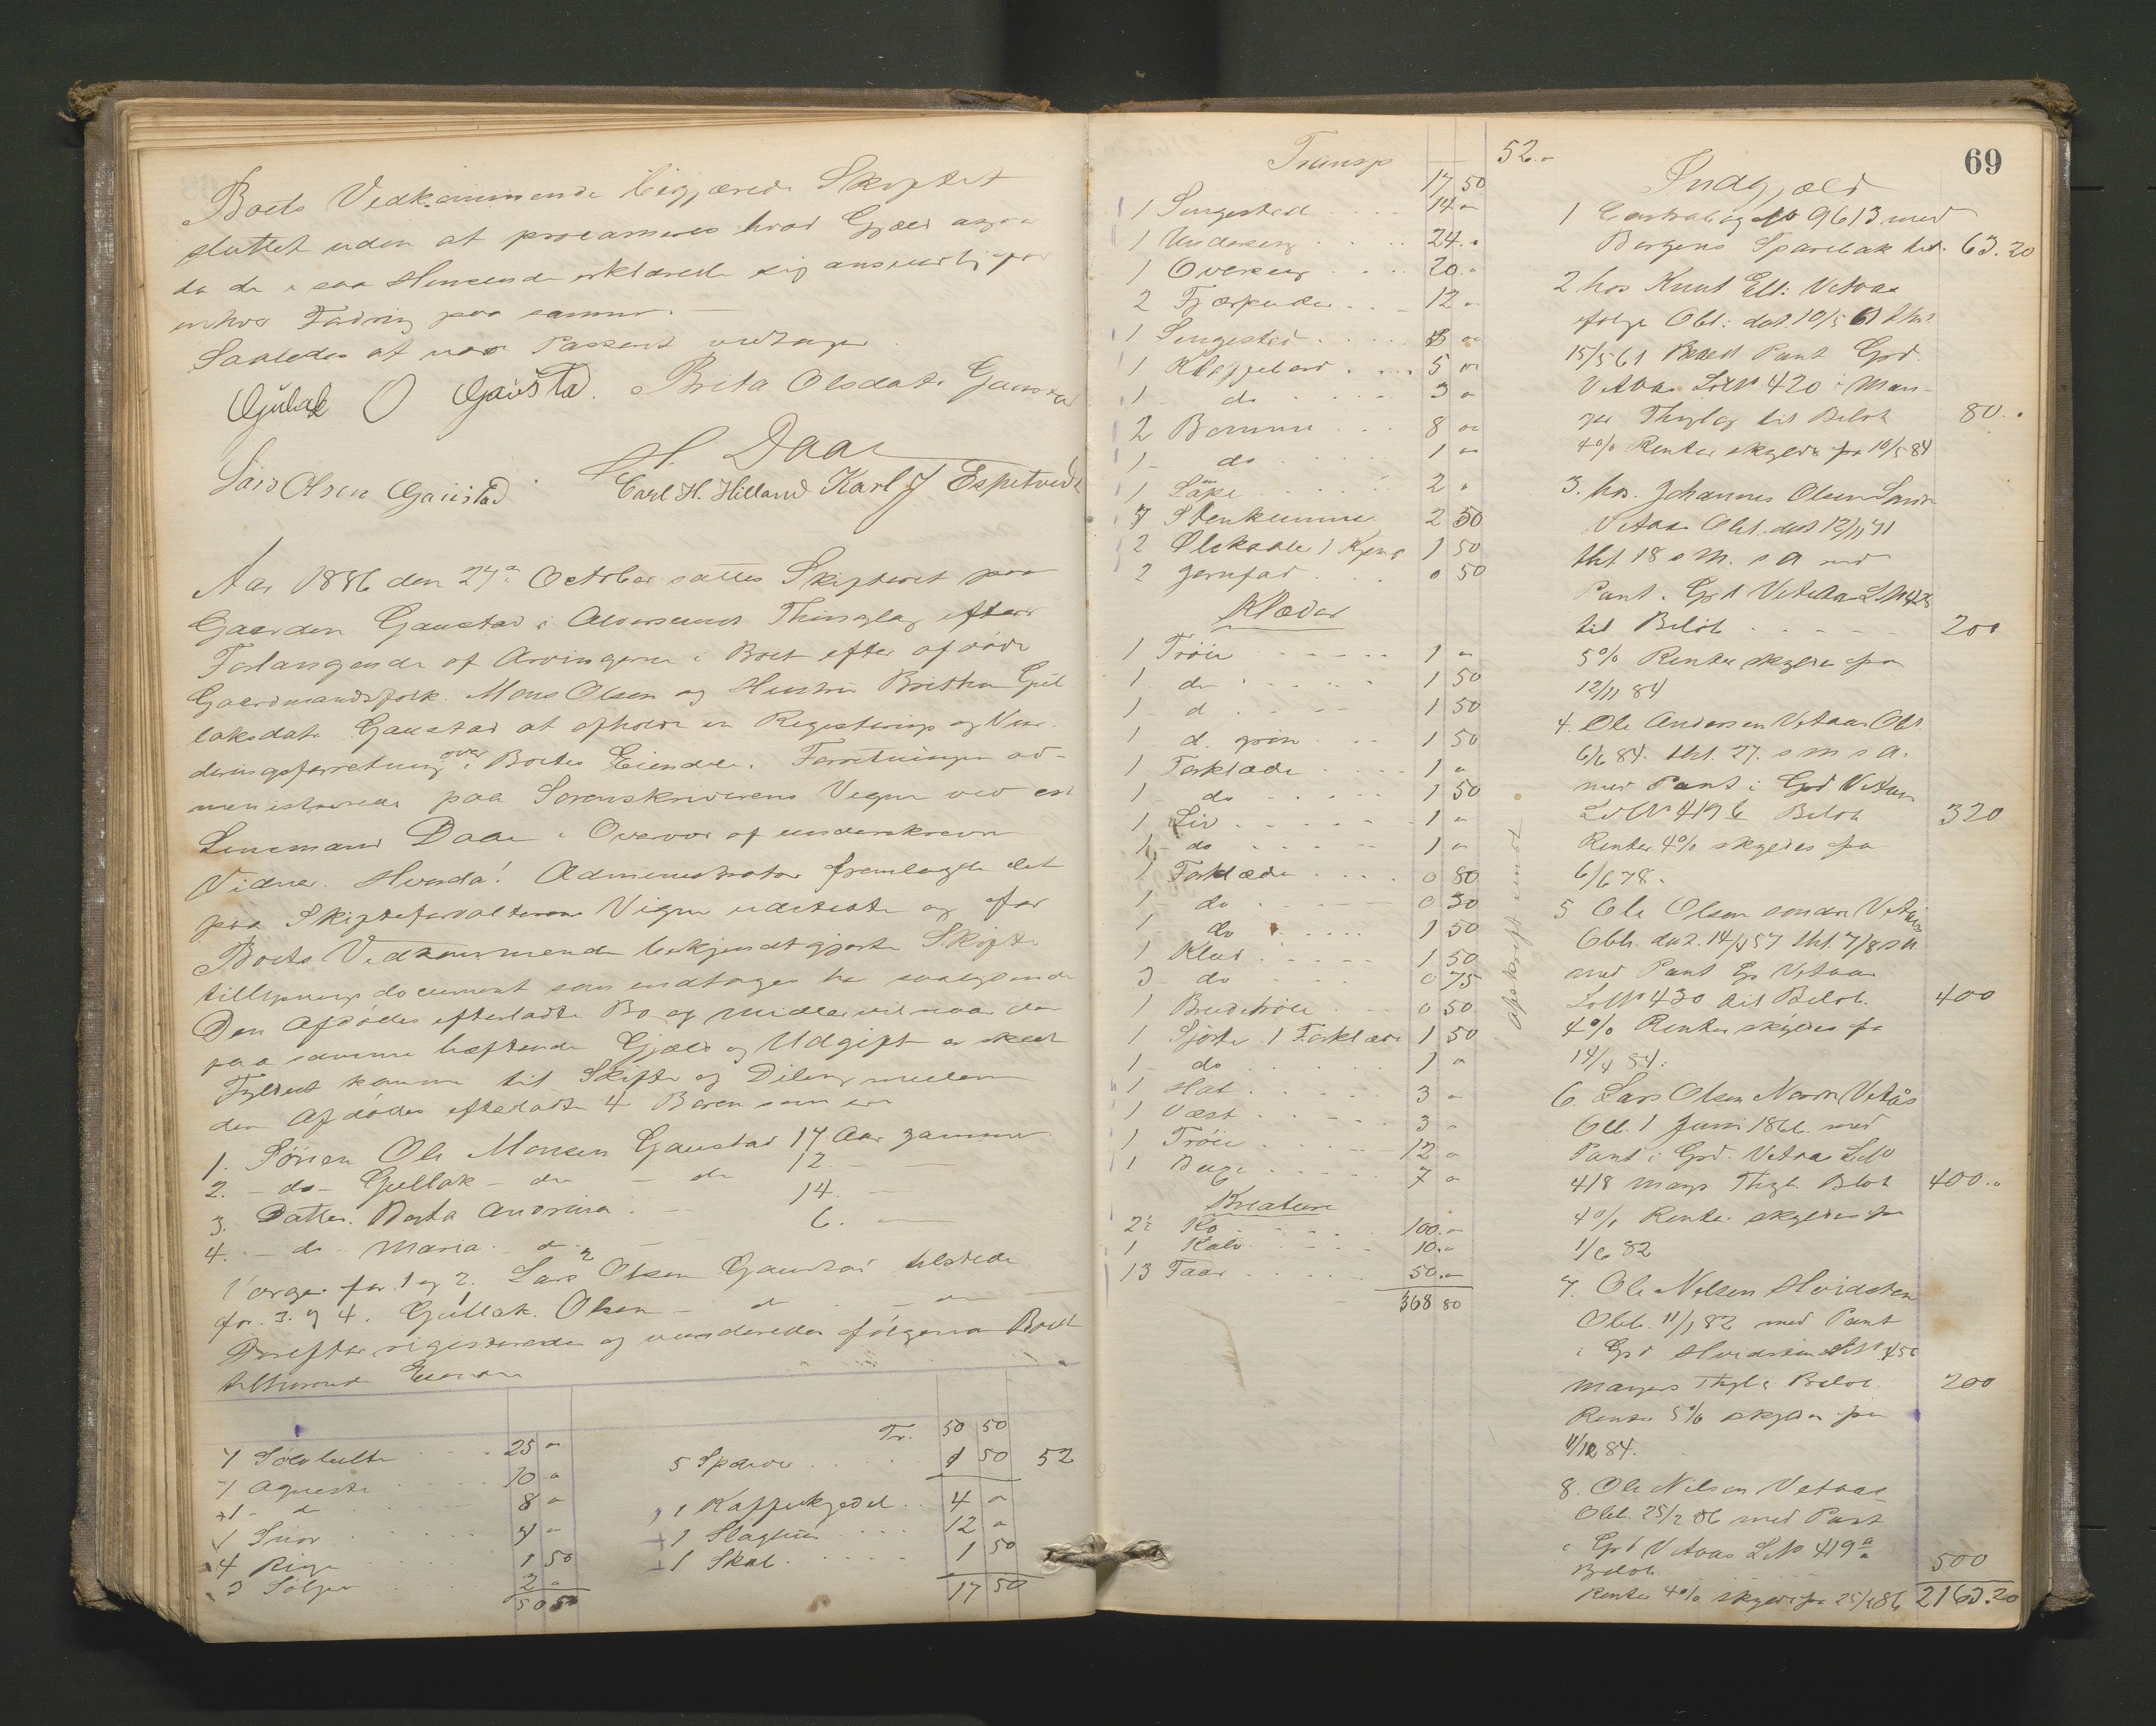 Boets Vedkommende begjærede Skiftet
sluttet uden at proclameres hvad Gjæld
da de i saa Henseende erklærede sig ansvarlig for
enhver Fordring paa samme.
Saaledes at være Passeret vedtager
Gulak O Gaustad. Brita Olsdatr Gaustad
H. Daae
Lars Olsen Gaustad
Carl H. Hilland Karl J Espetvedt
Aar 1886 den 27de October sattes Skifteret paa
Gaarden Gaustad i Alversunds Thinglag efter
Forlangende af Arvingerne i Boet efter afdøde
Gaardmandsfolk Mons Olsen og Hustru Britha Gul
laksdatr Gaustad at afholde en Registrerings og Vur-
deringsforretning over Boets Eiendele. Forretningen ad-
ministreredes paa Sorenskriverens Vegne ved
Lensmand Daae i Overvær af underskrevne
Vidner. Hvorda! Administrator fremlagde det
paa Skifteforvalterens Vegne udstedte og for
Boets Vedkommende bekjendtgjorte Skifte
tillysnings document som indtages
Den Afdødes efterladte Bo og Midler vil naar den
paa samme heftende Gjæld og Udgift er skeet
Fyldest komme til Skifte og Deling mellem
den Afdødes efterladte 4 Børn som er
1. Sønnen Ole Monsen Gaustad 17 Aar gammel
2. - do - Gullak - do - do 12. -
3. Datter. Berta Andrina . - 14. -
4. - do - Maria - do - 6. -
Værge for 1 og 2. Lars Olsen Gaustad tilstede
for 3. og 4. Gullak Olsen - do - do
Derefter registreredes og vurderedes følgende Boet
tilhørende Eiendele
7 Sølvbelte . . . 25 "
1 Agneste . . . 10 "
1 - do . . . 8 "
1 Snor . . . 4 "
4 Ringe . . . 1 50
3 Søljer . . . 2 "
50 50
Tr. 50 50
5 Spæner . . . 1 50 52
1 Kaffekjedel . . 4 "
1 Slaguhr . . . 12 "
1 Skab . . . 1 50
17 50
69
Transp 52."
17 50
1 Sengested . . . 14 "
1 Underseng . . . 24 "
1 Overseng . . . 20 "
2 Fjærpuder . . . 12 "
1 Sengested . . . 3 "
1 Klappebord . . . 5 "
1 do . . . 3 "
2 Bomme . . . 8 "
1 - do . . . 1 "
1 Lampe . . . 2 "
7 Stenkumme 2 50
2 Ølskaale 1 1 50
2 Jernfad . . . 0 50
Klæder
1 Trøie . . . 1 "
1 do . . . 1 50
1 - d . . . 1 50
1 d. grøn . . . 1 50
1 Forklæde . . . 1 "
1 - do . . . 1 50
1 Liv . . . 1 "
1 - do . . . 1 "
1 Forklæde . . . 0 80
1 - do . . . 0 30
1 - do . . . 1 50
1 Klæd . . . 1 50
3 - do . . . 0 75
1 Brudetrøie 0 50
1 Sjorte 1 Forklæde 1 50
1 - do . . . 1 "
1 Hat . . . 3 "
1 Vest . . . 3 "
1 Trøie . . . 12 "
1 Buxe . . . 7 "
Kreature
2 Ko . . . 100."
1 Kalv . . . 10."
13 Faar . . . 50."
368 80
Afskrift sendt
Indgjæld
1 Contrabog No 9613 med
Bergens Sparebak lyd. 63.20
2 hos Knut Ell: Vetaas
ifølge Obl: dat. 10/5 61 thl.
15/5 61 med Pant Grd.
Vetaas LNo 420 i Man-
ger Thinglag til Beløb 80."
4% Renter skyldes fra 10/5 84
3. hos Johannes Olsen
Vetaas Obl. dat 12/11 71
thl 18 s M. s A med
Pant i Grd Vetaas LNo 42
til Beløb . . . 200
5% Renter skyldes fra
12/11 84
4. Ole Andersen Vetaas Obl.
6/6 84. thl. 27. s m s A.
med Pant i Grd Vetaas
LNo 419 b Beløb 320
Renter 4% skyldes fra
6/6 78.
5 Ole Olsen søndre Vetaas
Obl. dat. 14/4 57 thl. 7/8 s A
med Pant Gr Vetaas
LNo 430 til Beløb. 400
4% Renter skyldes fra
14/4 84.
6. Lars Olsen Nordre Vetås
Obl. 1 Juni 1861 med
Pant i Grd. Vetaas LNo
418 Mangr Thgl. Beløb 400."
4% Renter skyldes fra
1/6 82
7. Ole Nelsen Hvidsten
Obl. 11/1 82 med Pant
i Grd Hvidsten LNo 456
Mangers Thglg Beløb. 200
Renter 5% skyldes fra
11/12 84.
8. Ole Nilsen Vetaas
Obl. 25/2 86 med Pant
i Grd Vetaas LNo 419 a
Beløb . . . 500
Renter 4% skyldes fra 25/2 86 2163.20